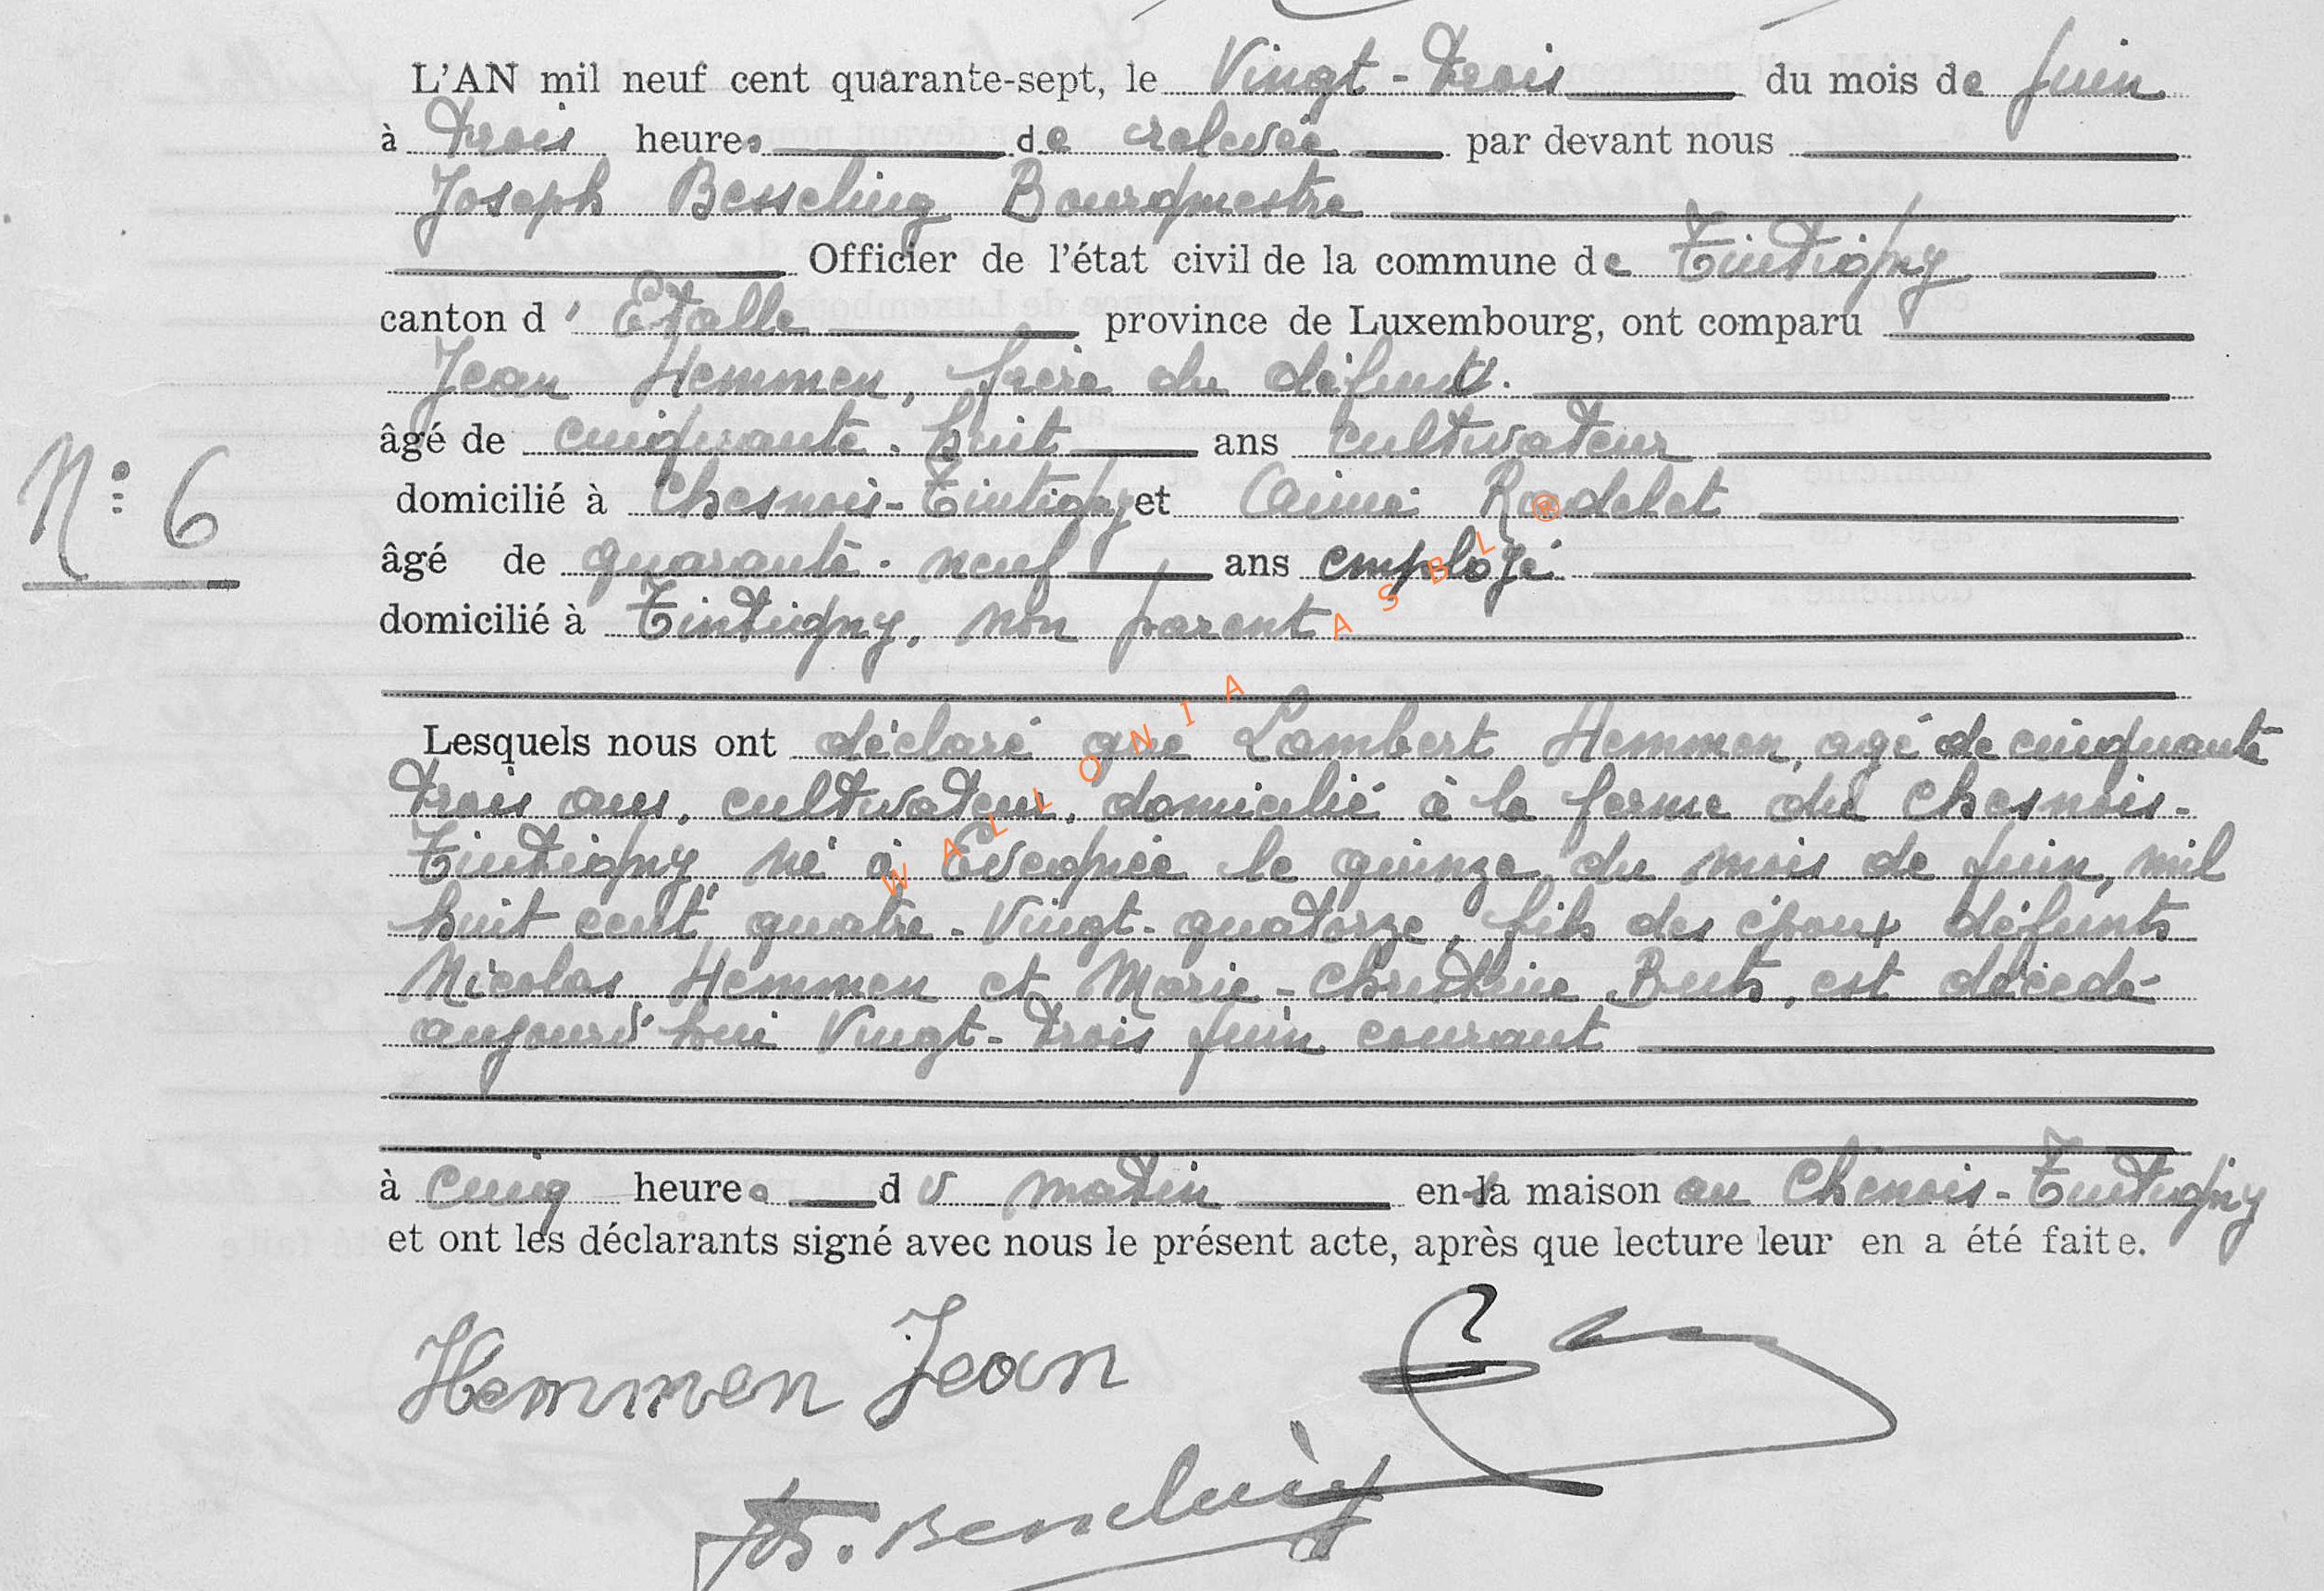 L'AN mil neuf cent quarante-sept, le Vingt-trois du mois de Juin
à trois heures de relevée par devant nous
Joseph Besseling Bourgmestre
Officier de l'état civil de la commune de Tintigny
canton d'Etalle province de Luxembourg, ont comparu
Jean Hemmen, frère du défunt.
âgé de cinquante-huit ans cultivateur
N° 6
domicilié à Chesnois-Tintigny et Aimé Rodelet
âgé de quarante-neuf ans employé
domicilié à Tintigny, non parent
WALLONIA ASBL ®
Lesquels nous ont déclaré que Lambert Hemmen, agé de cinquante
trois ans, cultivateur, domicilié à la ferme du Chesnois-
Tintigny, né à Evegnée le quinze du mois de Juin, mil
huit cent quatre-Vingt-quatorze, fils des époux défunts
Nicolas Hemmen et Marie-Christine, est décédé
aujourd'hui Vingt-trois Juin courant
à cinq heures du matin en sa maison au Chenois-Tintigny
et ont les déclarants signé avec nous le présent acte, après que lecture leur en a été faite.
Hemmen Jean
Besseling